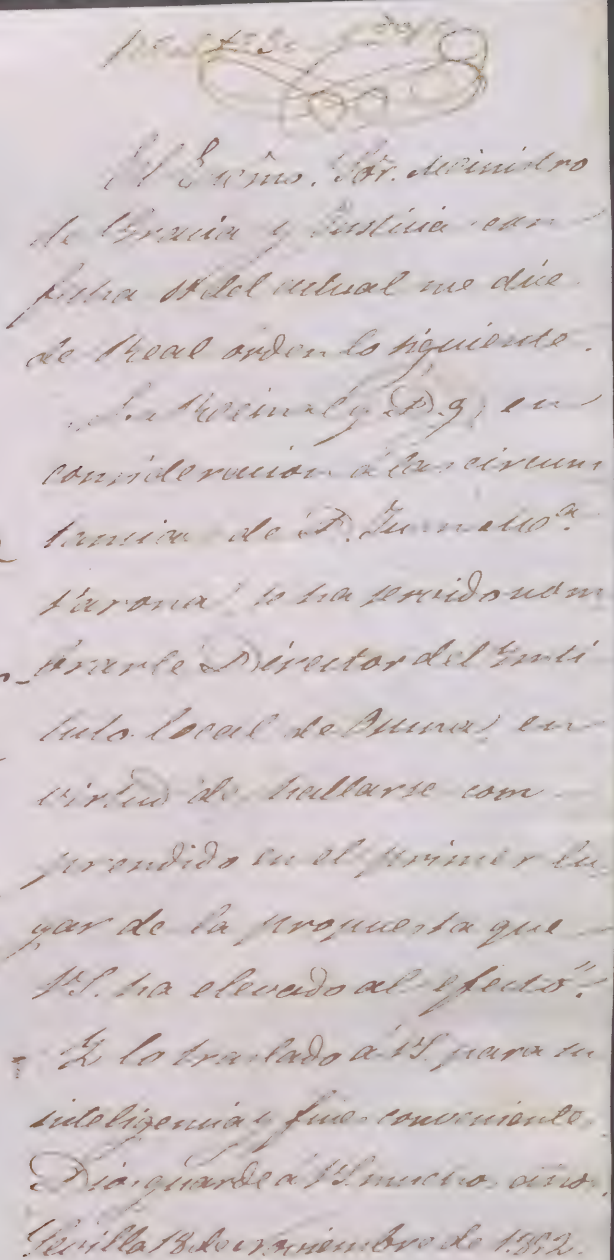 El Excmo. Sor. Ministro
de Gracia y Justicia con
fecha del actual me dice
de Real orden lo siguiente.
La Reina (q. D. g.) en
consideracion á las circuns
tancias de D. Juan
Varona se ha servido nom
brarle Director del Insti
tuto local de Osuna, en
virtud de hallarse com
prendido en el primer lu
gar de la propuesta que
V.S. ha elevado al efecto".
Y lo traslado á V.S. para su
inteligencia y fines convenientes.
Dios guarde á V.S. muchos años.
Sevilla 18 de noviembre de 1852.